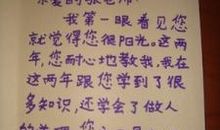 亲爱的张老师:
我第一眼看见您
就觉得您很阳光。这两
年,您耐心地教我,我在
这两年跟您学到了很
多知识,还学会了做人
的道理。您